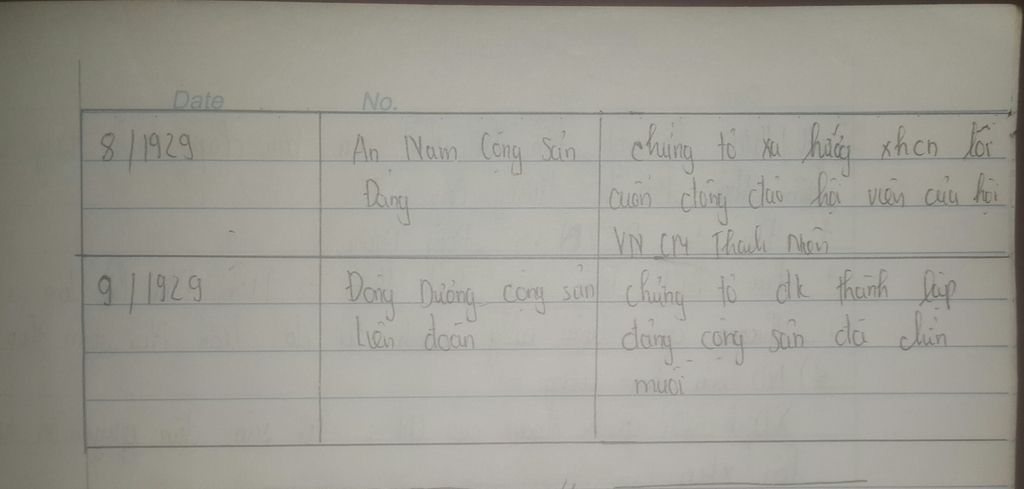 Date No.
8/1929 An Nam Cộng Sản chứng tỏ xu hướng xhcn lôi
Đảng cuốn đông đảo hội viên của hội
VN CM Thanh Niên
9/1929 Đông Dương cộng sản chứng tỏ đk thành lập
Liên đoàn đảng cộng sản đã chín
muồi